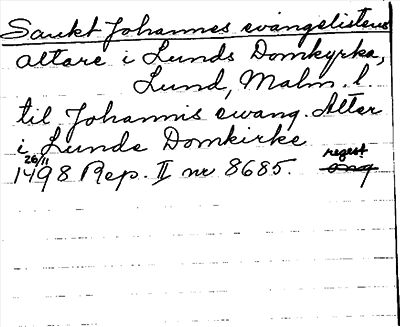 Sankt Johannes evangelistens
altare i Lunds Domkyrka,
Lund, Malm. l.
til Johannis ewang. Alter
i Lunde Domkirke
26/11
1498 Rep. II nr 8685. regest
orig